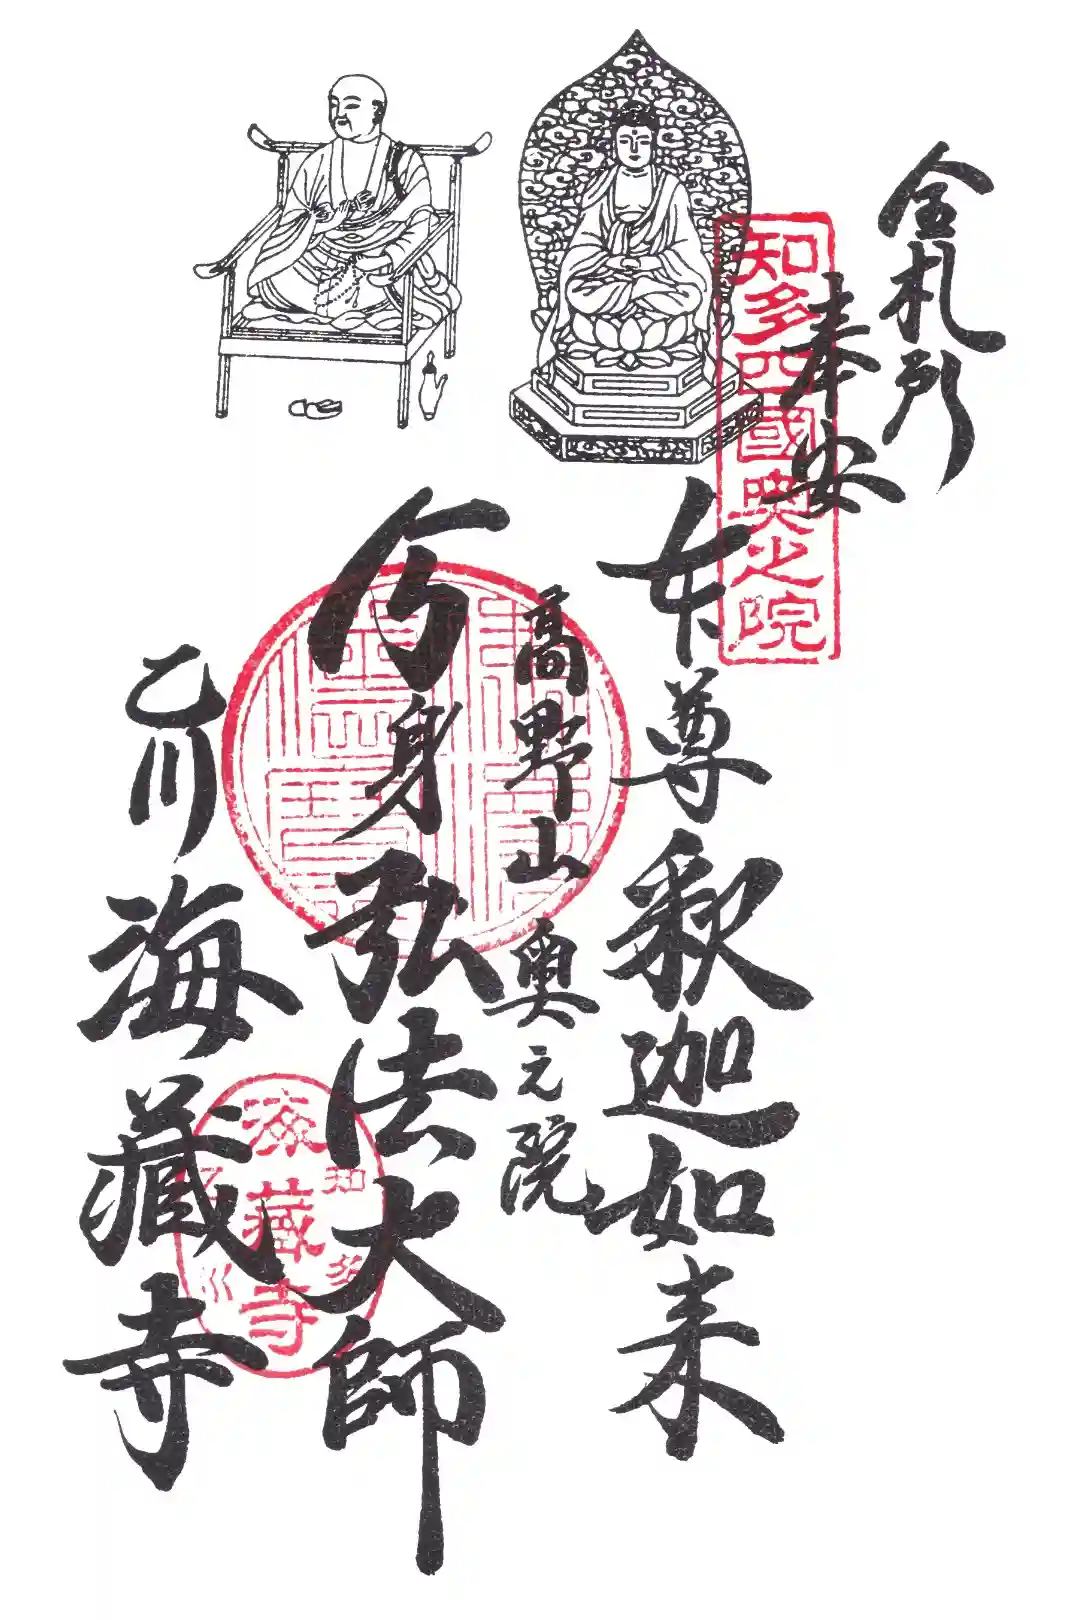 全札所
奉安
知多四國奥之院
本尊釈迦如来
高野山奥之院
分身弘法大師
乙川海蔵寺
海藏寺
知多
乙川